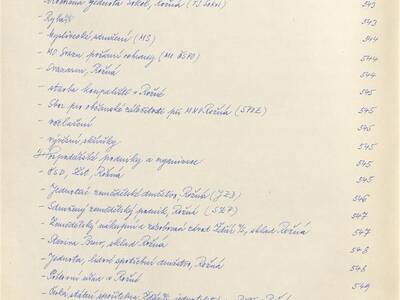 jednota Sokol, Rožná (TJ Sokol) 543
- Rybáři 543
- Myslivecké sdružení (MS) 544
- MO Svazu požární ochrany (MO SSPO) 544
- Svazarm, Rožná 544
- stavba koupaliště v Rožné 545
- Sbor pro občanské záležitosti při MNV Rožná (SPOZ) 545
- rozhlašení 545
- výroční schůzky 545
Hospodářské podniky a organisace 545
- ČSD, Rožná 545
- Jednotné zemědělské družstvo, Rožná (JZD) 546
- Sdružený zemědělský podnik, Rožná (SZP) 547
- Zemědělský nákupní a zásobovací závod Žďár n/S, sklad Rožná 547
- Stavina Brno, sklad Rožná 548
- Jednota, lidové spotřební družstvo, Rožná 548
- Poštovní úřad v Rožné 549
- Česká státní spořitelna Rožná